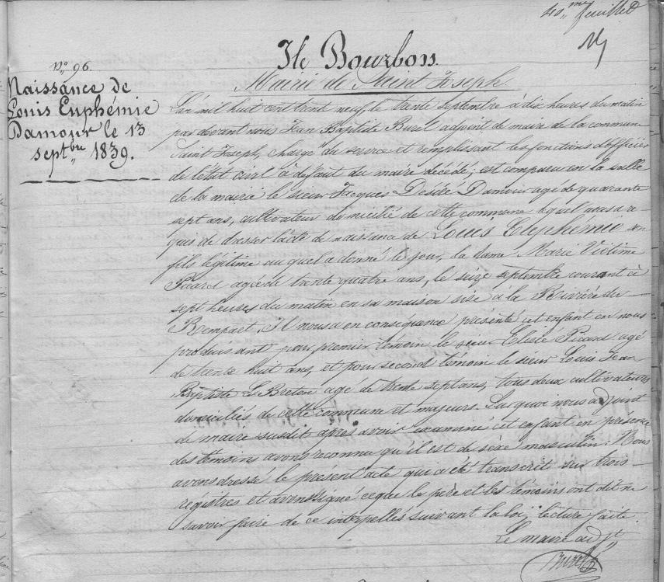 40me feuillet
Ile Bourbon
Mairie de Saint Joseph
no. 96
Naissance de
Louis Euphémie
Damour le 13
septbre 1839.
L'an mil huit cent trente neuf le trente septembre à dix heures du matin
par devant nous Jean Baptiste adjoint du maire de la commune
Saint Joseph, chargé du service et remplissant les fonctions d'officier
de l'état civil à défaut du maire décédé; est comparu en la salle
de la mairie le sieur Jacques Désiré Damour agé de quarante
sept ans, cultivateur domicilié de cette commune lequel nous a re
quis de dresser l'acte de naissance de Louis Euphémie son
fils légitime auquel a donné le jour, la dame Marie
Picard agée de trente quatre ans, le seize septembre courant à
sept heures du matin en sa maison sise à la Rivière du
Rempart. Il nous a en conséquence présenté cet enfant en nous
produisant pour premier témoin le sieur Picard agé
de trente huit ans, et pour second témoin le sieur Louis Jean
Baptiste Le Breton agé de trente sept ans, tous deux cultivateurs
domiciliés de cette commune et majeurs. Sur quoi nous adjoint
de maire susdit après avoir examiné cet enfant en présence
des témoins avons reconnu qu'il est de sexe masculin. Nous
avons dressé le présent acte qui a été transcrit sur trois
registres et avons signé le père et les témoins ont dit ne
savoir faire de ce interpellés suivant la loi; lecture faite
Le maire adjt